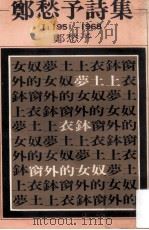 鄭愁予詩集
1951-1968
鄭愁予
女奴夢土上衣鉢窗
外的女奴夢土上衣
鉢窗外的女奴夢土
上衣鉢窗外的女奴
夢土上衣鉢窗外的
女奴夢土上衣鉢窗
外的女奴夢土上衣
鉢窗外的女奴夢土
上衣鉢窗外的女奴